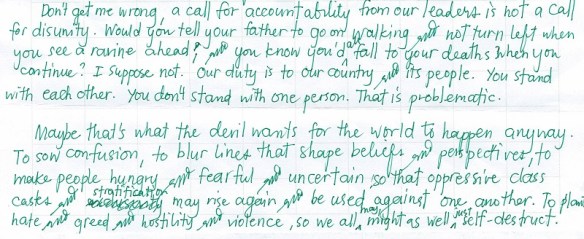 Don't get me wrong, a call for accountability from our leaders is not a call
for disunity. Would you tell your father to go on walking and not turn left when
you see a ravine ahead, and you know you'd all fall to your deaths when you
continue? I suppose not. Our duty is to our country and its people. You stand
with each other. You don't stand with one person. That is problematic.
Maybe that's what the devil wants for the world to happen anyway.
To sow confusion, to blur lines that shape beliefs and perspectives, to
make people hungry and fearful and uncertain so that oppressive class
castes and stratification may rise again and be used against one another. To plant
hate and greed and hostility and violence, so we all may might as well just self-destruct.